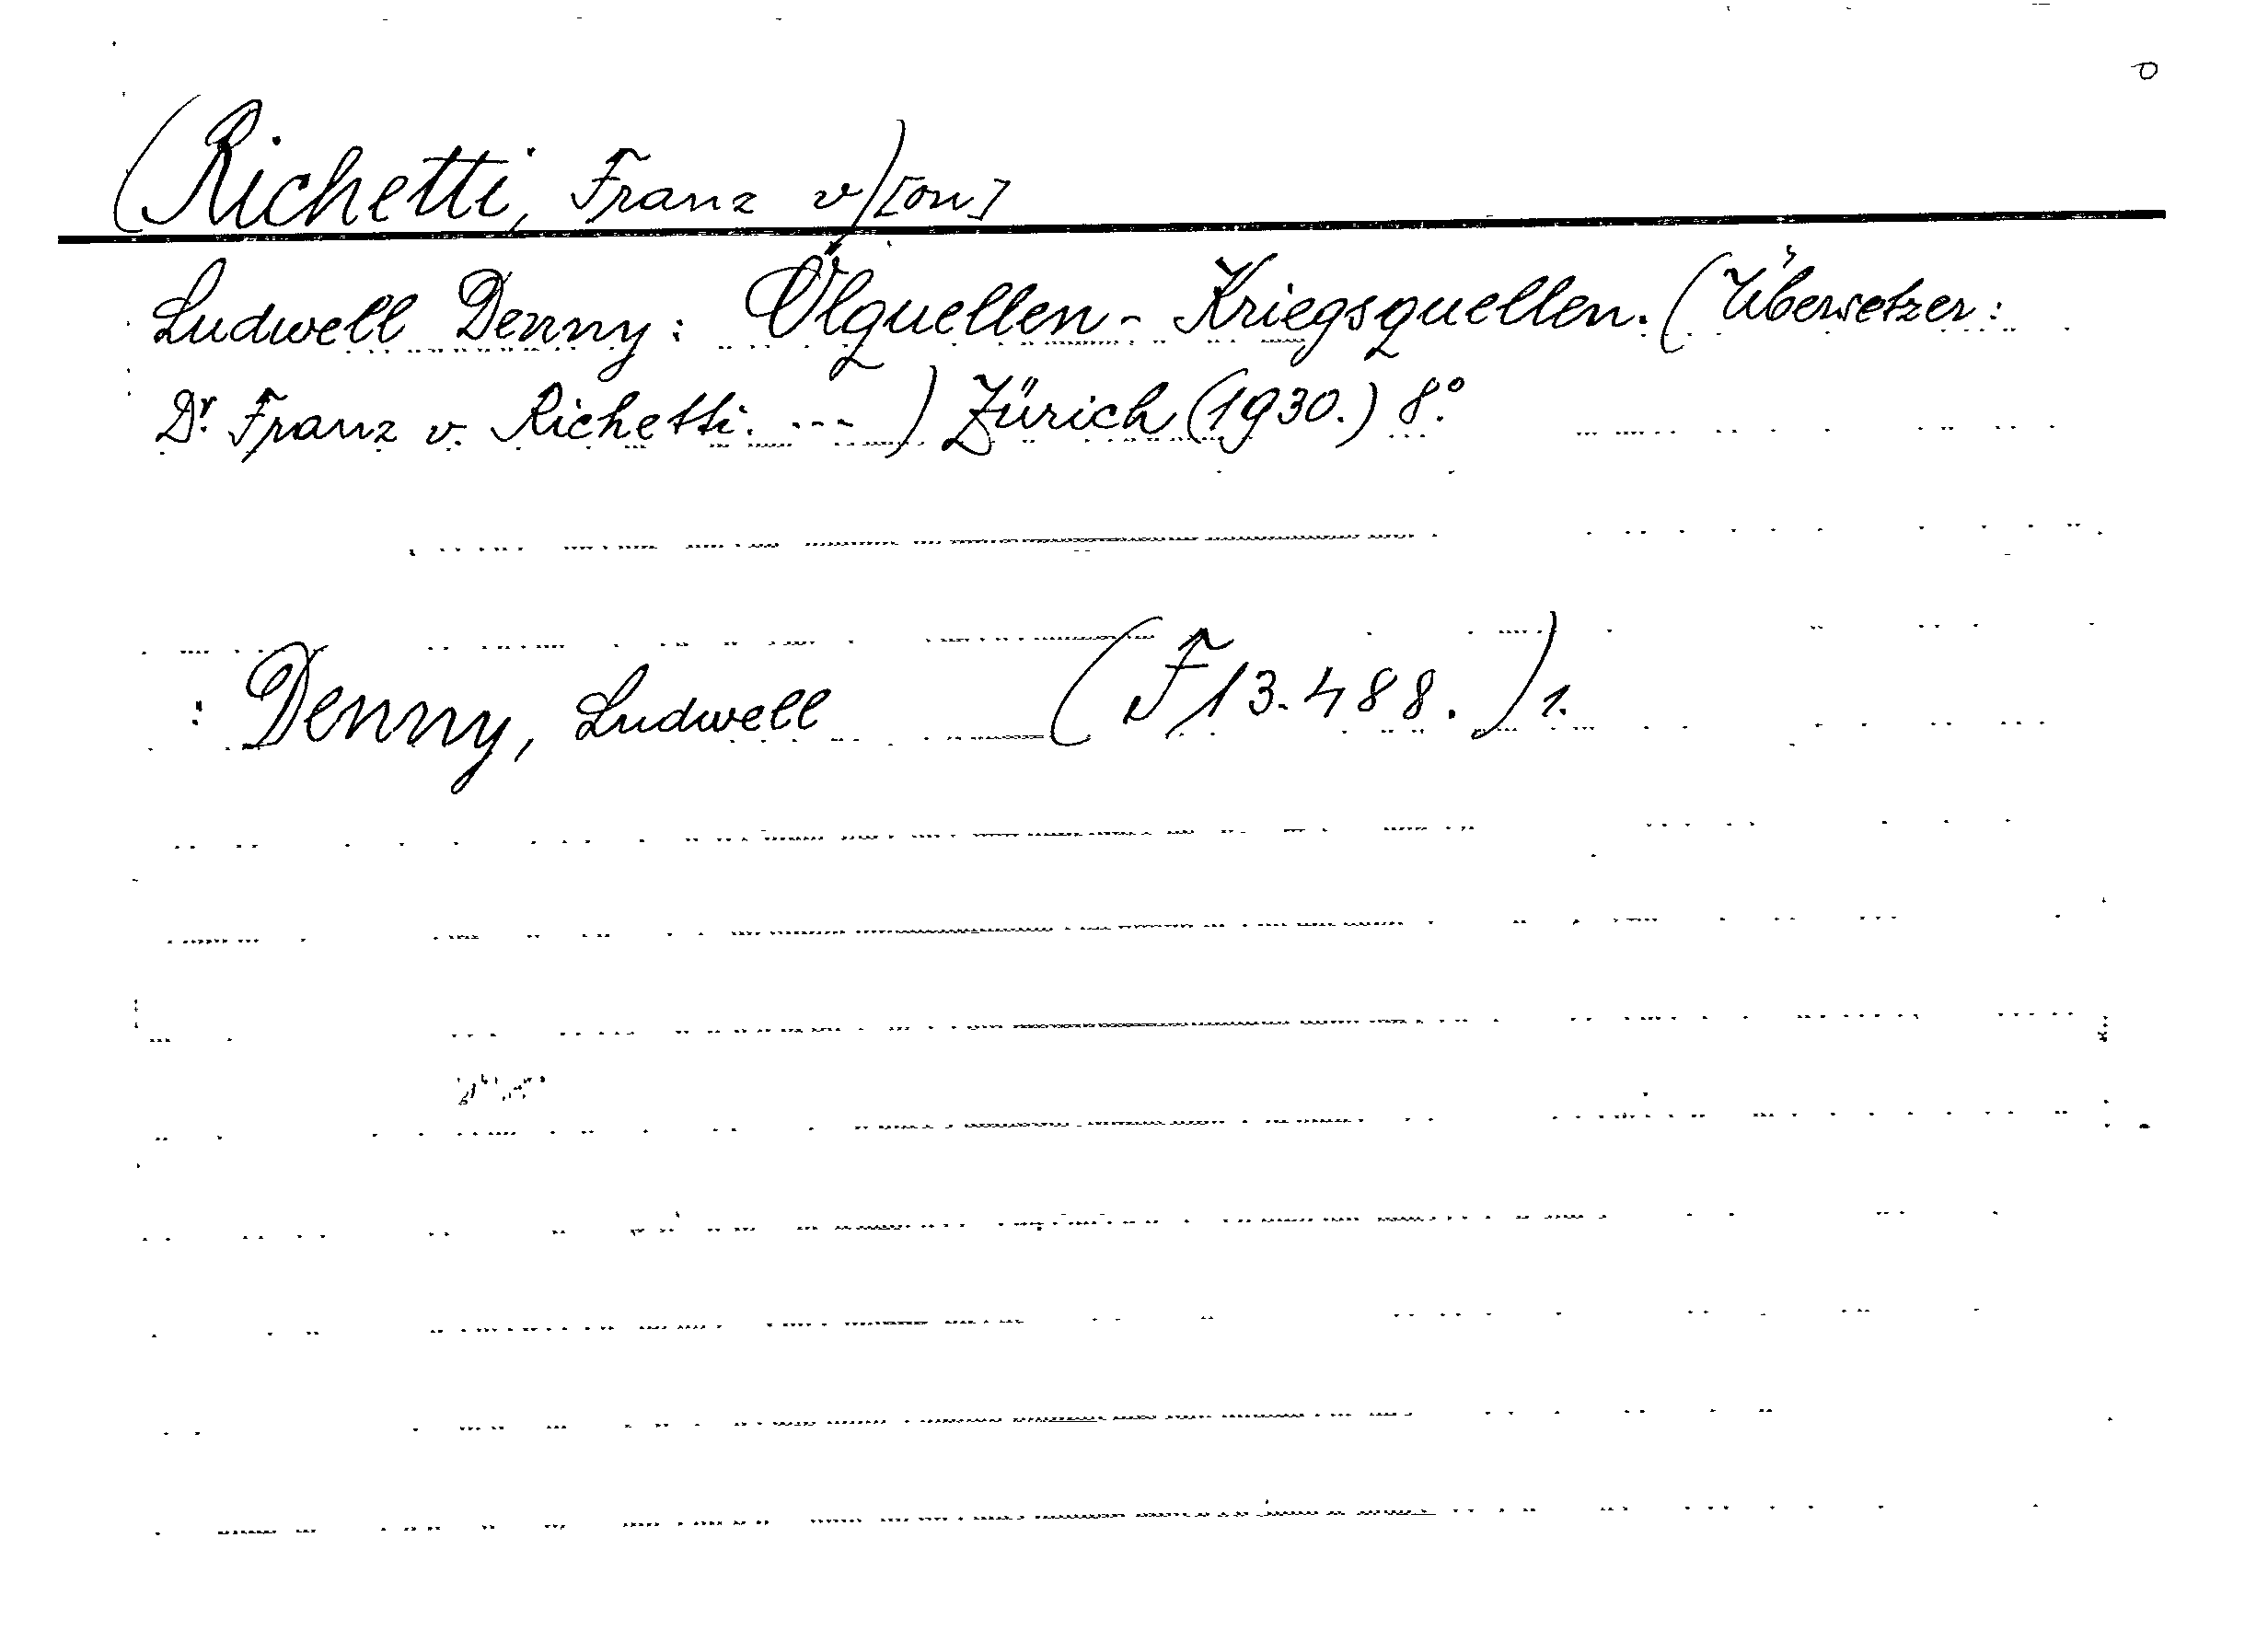 (Richetti, Franz v)[on]
Ludwell Denny: Ölquellen - Kriegsquellen. (Übersetzer:
Dr. Franz v. Richetti. ---) Zürich (1930.) 8.°
: Denny, Ludwell (F 13.488.) 1.